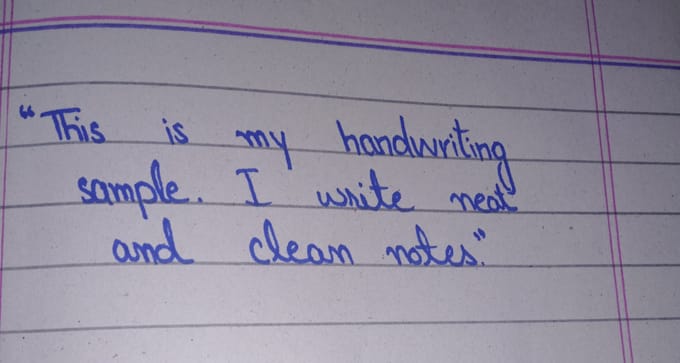 “This is my handwriting
sample. I write neat
and clean notes.”